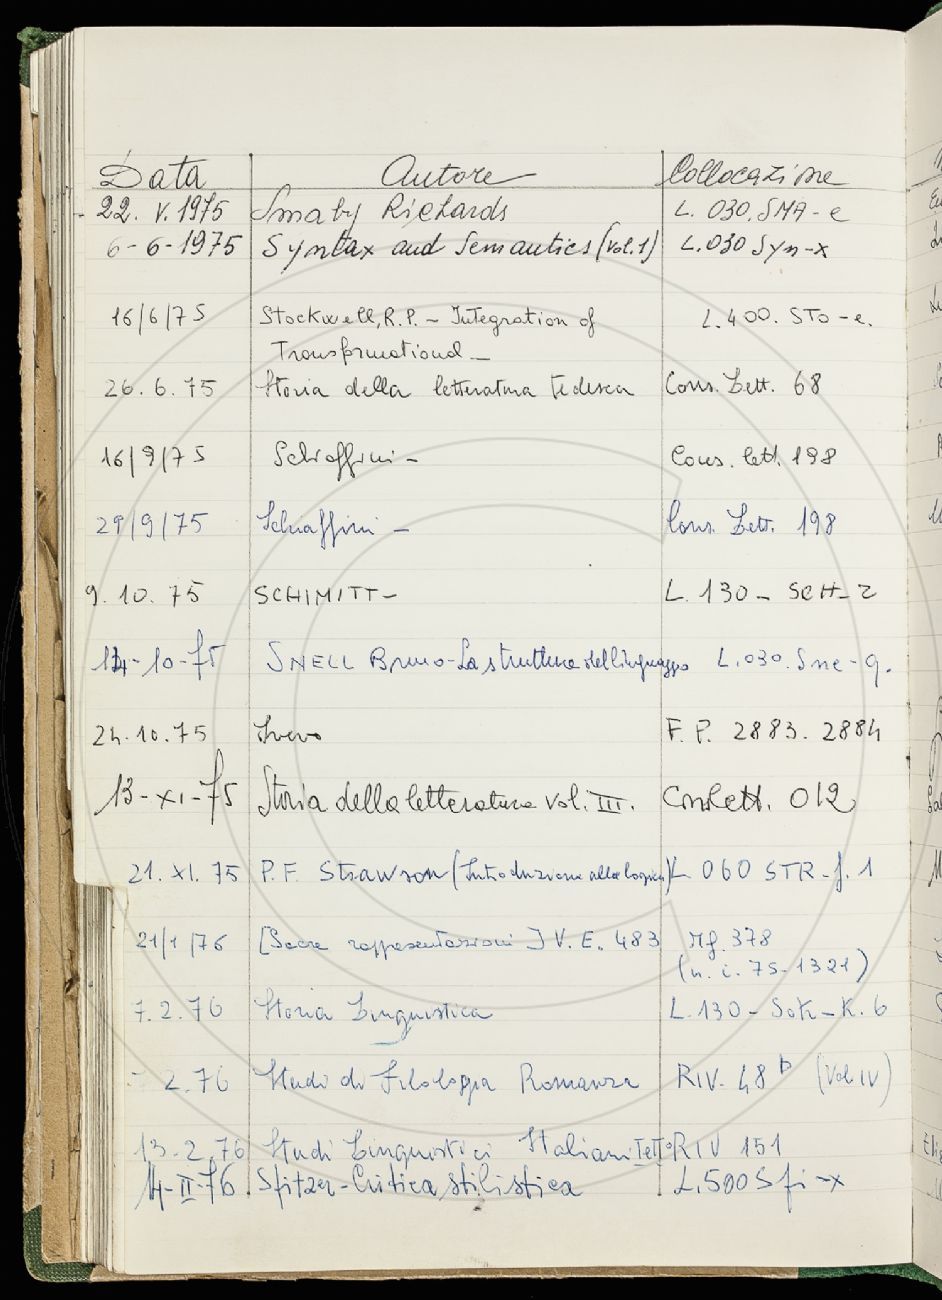 Data Autore Collocazione
22. V. 1975 Smaby Richards L. 030. SMA - e
6 - 6 - 1975 Syntax and Semantics (Vol. 1) L. 030 Syn - x
16/6/75 Stockwell, R.P. - Integration of L. 400. STO - e.
Transformational -
26. 6. 75 Storia della letteratura tedesca Cons. Lett. 68
16/9/75 Schiaffini - Cons. lett. 198
29/9/75 Schiaffini - Cons. Lett. 198
9. 10. 75 SCHIMITT - L. 130 - SCH - z
14 - 10 - 75 SNELL Bruno - La struttura del linguaggio L. 030. Sne - g.
24. 10. 75 Svevo F. P. 2883. 2884
13 - XI - 75 Storia della letteratura vol. III. Cons lett. 012
21. XI. 75 P.F. Strawson (Introduzione alla logica) L 060 STR - f. 1
21/1/76 [Sacre rappresentazioni] V. E. 483 Mf. 378
(n. i. 75 - 1321)
7. 2. 76 Storia Linguistica L. 130 - SOK - K. 6
2. 76 Studi di Filologia Romanza RIV. 48 b (Vol IV)
13. 2. 76 Studi Linguistici Italiani RIV 151
14 - II - 76 Spitzer - Critica stilistica L. 500 Spi - x